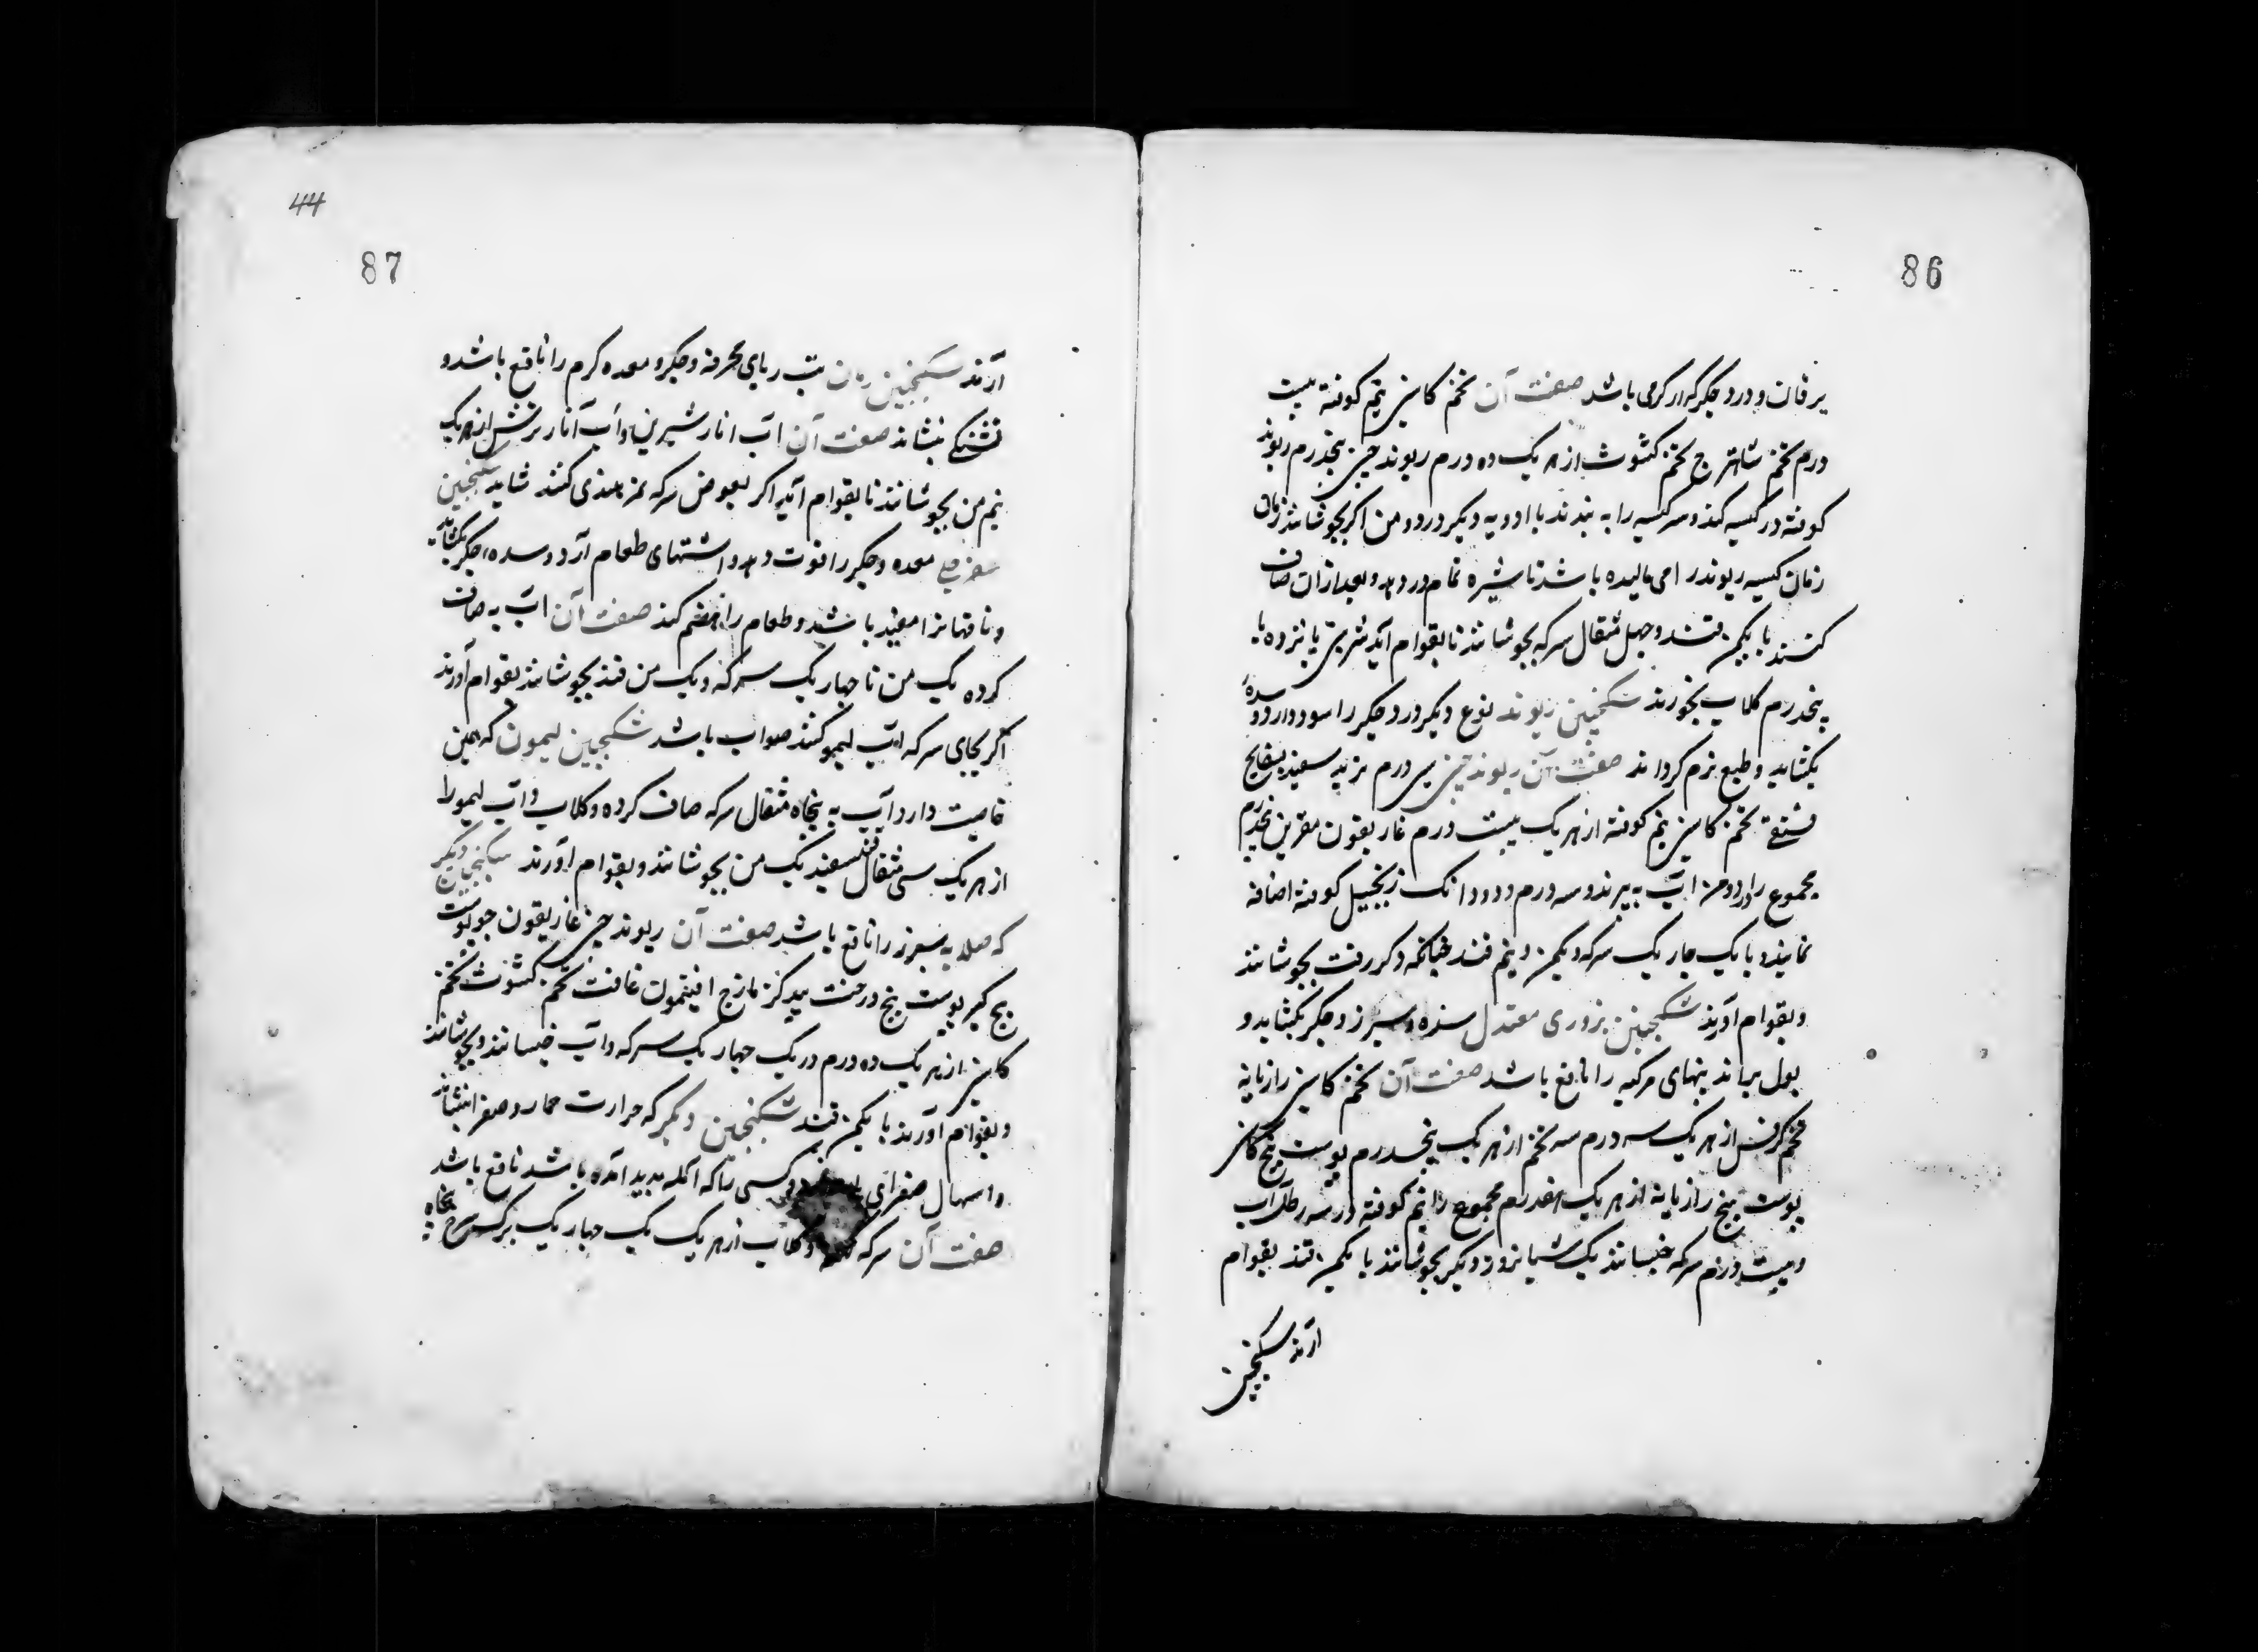 86
یرقان و درد جکر که از کرمی باشد صفت آن تخم کاسنی نیم کوفته بیست
درم تخم شاهترج تخم کشوث از هر یک ده درم ریوند چینی پنجدرم ریوند
کوفته در کیسه کنند و سر کیسه را به بندند با ادویه دیکر در دو من اکر بجوشانند زمان
زمان کیسه ریوند را می مالیده باشد تا شیره تمام در دهد و بعد از ان صاف
کنند با یکمن قند و چهل مثقال سرکه بجوشانند تا بقوام آید شربتی پانزده با
پنجدرم کلاب بخورند سکنجبین ریوند نوع دیکر درد جکر را سود دارد و سده
بکشاید و طبع نرم کرداند صفت آن ریوند چینی سی درم تربد سفید بسفایج
فستقی تخم کاسنی نیم کوفته از هر یک بیست درم غاریقون مغربین پنجدرم
مجموع را در دو من آب به پزند و سه درم و دو دانک زنجبیل کوفته اضافه
نمایند و با یک چار یک سرکه و یکمن و نیم قند چنانکه ذکر رفت بجوشانند
و بقوام آورند سکنجبین بزوری معتدل سده و سپرز و جکر بکشاید و
بول براند تبهای مرکبه را نافع باشد صفت آن تخم کاسنی رازیانه
تخم کرفس از هر یک سه درم سه تخم از هر یک پنجدرم پوست بیخ کاسنی
پوست بیخ رازیانه از هر یک هفدرم مجموع را نیم کوفته در سه رطل آب
و بیست درم سرکه خیسانند یک شبانروز و دیکر بجوشانند با یکمن قند بقوام
آرند سکنجبین
44
87
آرند سکنجبین رمان تب ربای محرقه و جکر و معده کرم را نافع باشد و
تشنکی بنشاند صفت آن آب انار شیرین و آب انار ترش از هر یک
نیم من بجوشانند تا بقوام آید اکر بعوض سرکه تمر هندی کنند شاید سکنجبین
سفرجلی معده و جکر را قوت دهد و اشتهای طعام آرد و سده جکر بکشاید
و ناقهانرا مفید باشد و طعام را هضم کند صفت آن آب به صاف
کرده یک من تا چهار یک سرکه و یک من قند بجوشانند بقوام آورند
اکر بجای سرکه آب لیمو کنند صواب باشد سکنجبین لیمون که همین
خاصیت دارد آب به پنجاه مثقال سرکه صاف کرده و کلاب و آب لیمو را
از هر یک سی مثقال قند سفید یک من بجوشانند و بقوام آورند سکنجبین دیکر
که صلابه سپرز را نافع باشد صفت آن ریوند چینی غاریقون جو پوست
بیخ کبر پوست بیخ درخت بید کزمازج افیتمون غافت تخم کشوث تخم
کاسنی از هر یک ده درم در یک چهار یک سرکه و آب خیسانند و بجوشانند
و بقوام آورند با یکمن قند سکنجبین دیکر که حرارت خمار و صفرا بنشاند
و اسهال صفرای و کسی را که آکله پدید آمده باشد نافع باشد
صفت آن سرکه و کلاب از هر یک یک چهار یک برک سرخ پنجاه